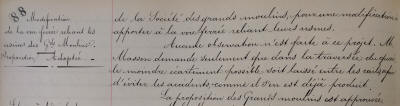 88
Modification
de la voie ferrée reliant les
usines des Gds Moulins.
Proposition Adoptée.
de la Société des grands moulins, pour une modification à
apporter à la voie ferrée reliant leurs usines.
Aucune observation n'est faite à ce projet. M.
Masson demande seulement que dans la traversée du quai
le moindre écartement possible soit laissé entre les rails afin
d'éviter les accidents comme il s'en est déjà produit.
La proposition des Grands moulins est approuvée.